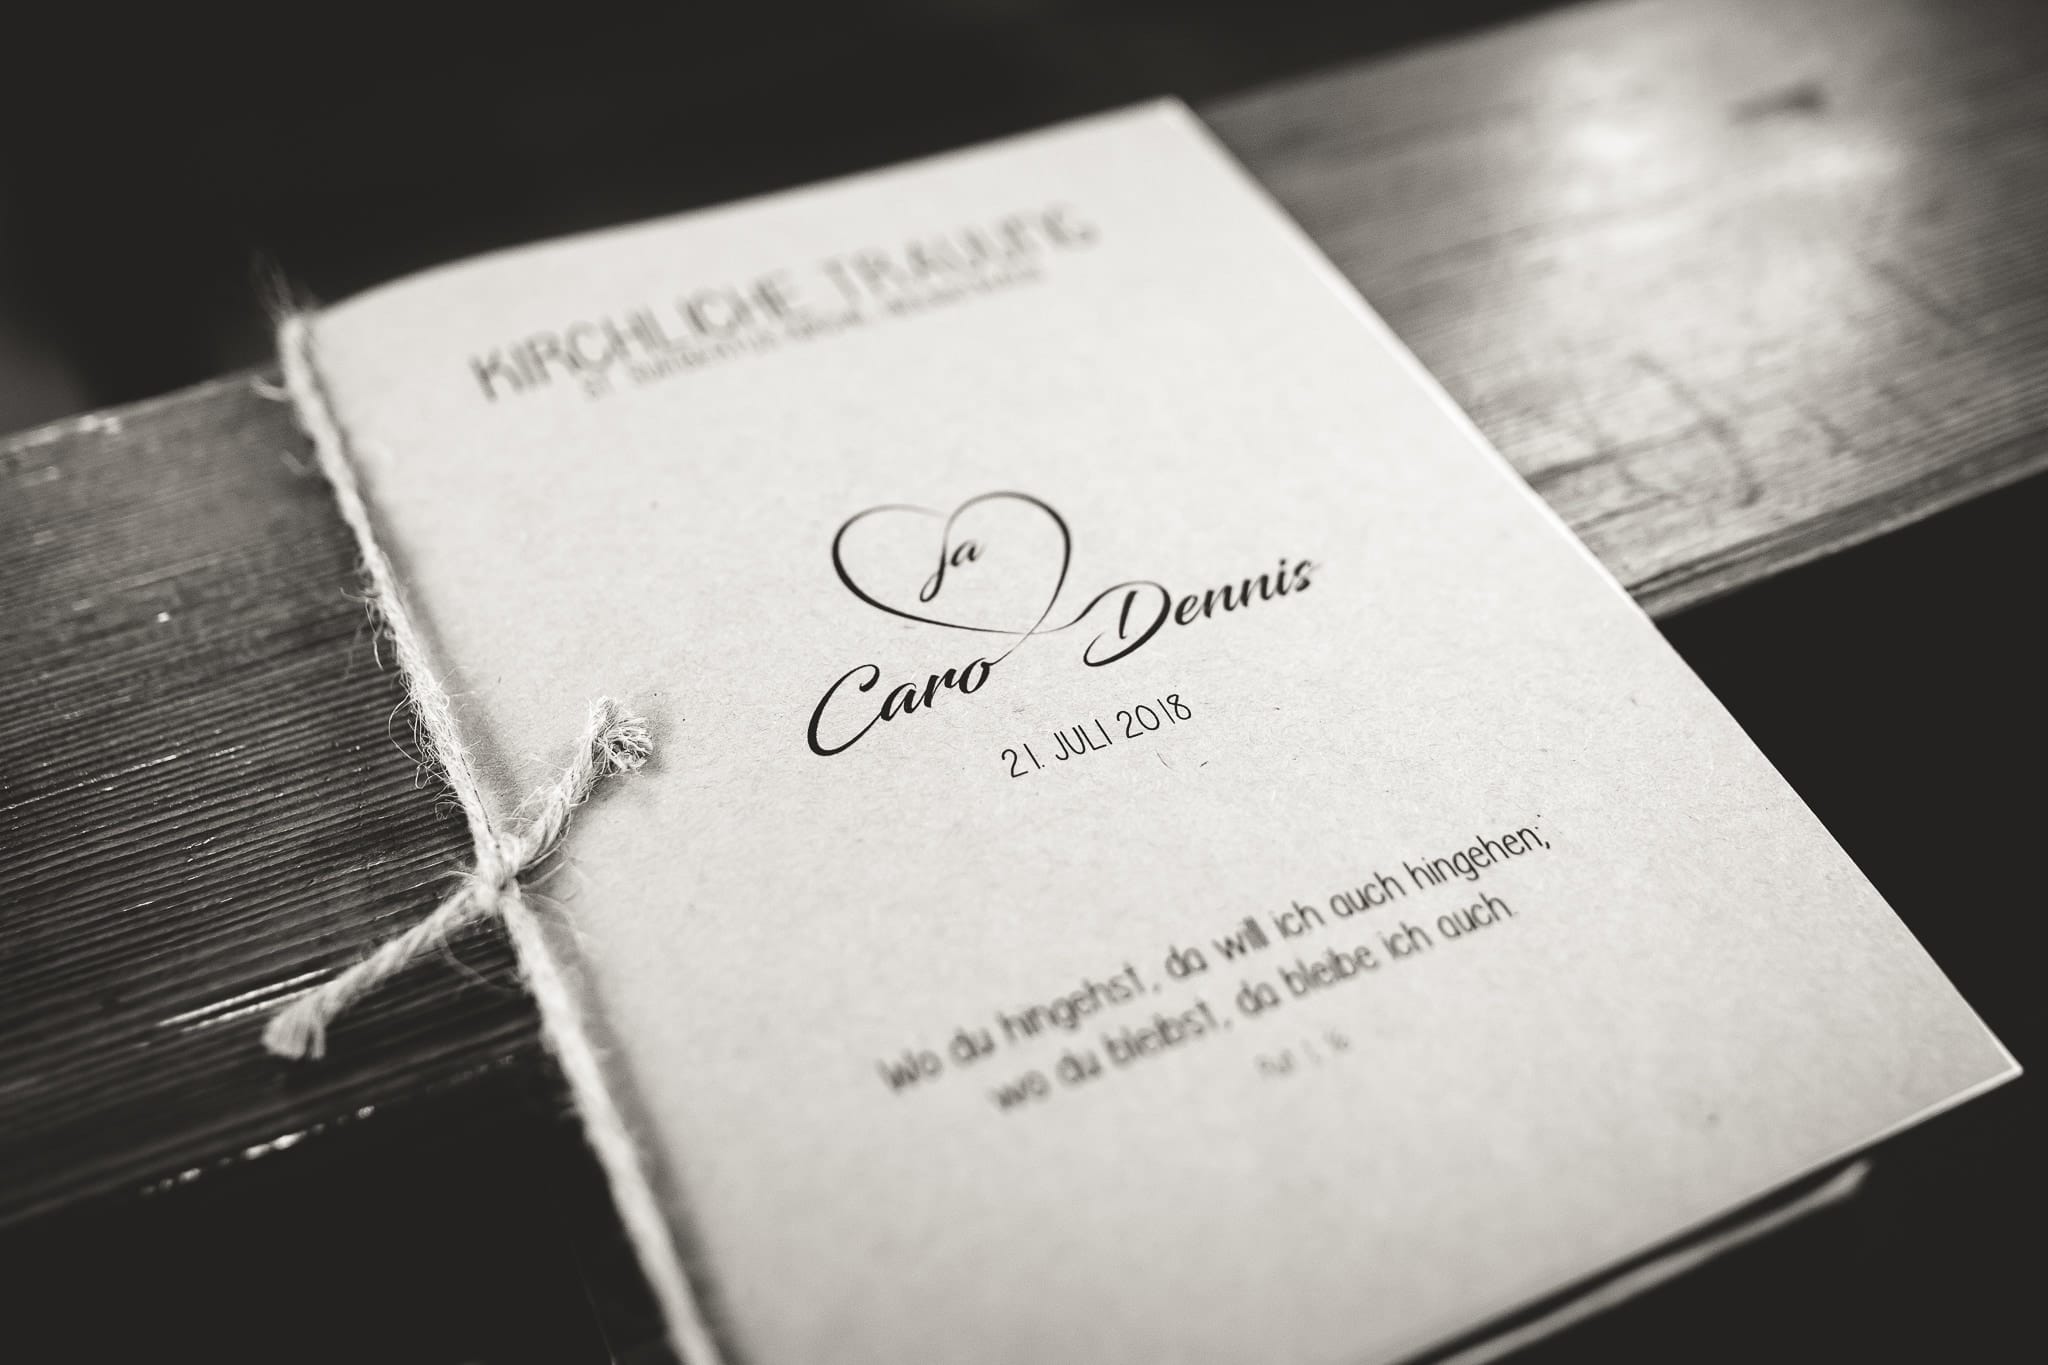 KIRCHLICHE TRAUUNG
ST.
Ja
Caro Dennis
21. JULI 2018
Wo du hingehst, da will ich auch hingehen;
wo du bleibst, da bleibe ich auch.
Rut 1, 16